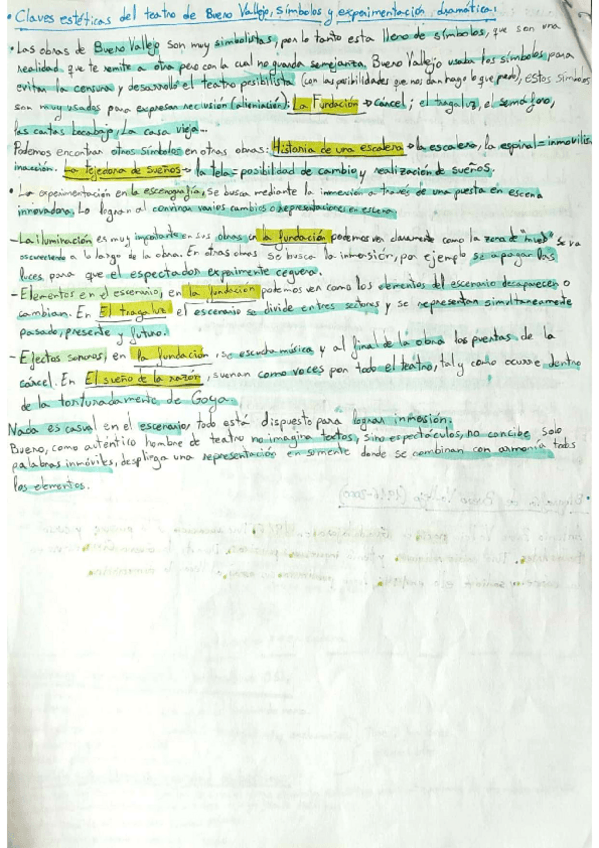 • Claves estéticas del teatro de Buero Vallejo, símbolos y experimentación dramática:
• Las obras de Buero Vallejo son muy simbolistas, por lo tanto esta lleno de símbolos, que son una
realidad que te remite a otra pero con la cual no guarda semejanza, Buero Vallejo usaba los símbolos para
evitar la censura y desarrolló el teatro posibilista (con las posibilidades que nos dan hago lo que puedo), estos símbolos
son muy usados para expresar reclusión (alienación): La Fundación → cárcel; el tragaluz, el semáforo,
las cartas bocabajo, La casa vieja...
Podemos encontrar otros símbolos en otras obras: Historia de una escalera → la escalera, la espiral = inmovilis
inacción. La tejedora de sueños → la tela = posibilidad de cambio y realización de sueños.
• La experimentación en la escenografía, se busca mediante la inmersión a través de una puesta en escena
innovadora. Lo logran al varios cambios o representaciones en escena
– La iluminación es muy importante en sus obras en la fundación podemos ver claramente como la zona de se va
oscureciendo a lo largo de la obra. En otras obras se busca la inmersión, por ejemplo se apagan las
luces para que el espectador experimente ceguera.
– Elementos en el escenario, en la fundación podemos ver como los elementos del escenario desaparecen o
cambian. En El tragaluz el escenario se divide en tres sectores y se representan simultáneamente
pasado, presente y futuro.
– Efectos sonoros, en la fundación, se escucha música y al final de la obra las puertas de la
cárcel. En El sueño de la razón, suenan como voces por todo el teatro, tal y como ocurre dentro
de la torturada mente de Goya.
Nada es casual en el escenario, todo está dispuesto para lograr inmersión.
Buero, como auténtico hombre de teatro no imagina textos, sino espectáculos, no concibe solo
palabras inmóviles, despliega una representación en su mente donde se combinan con armonía todos
los elementos.